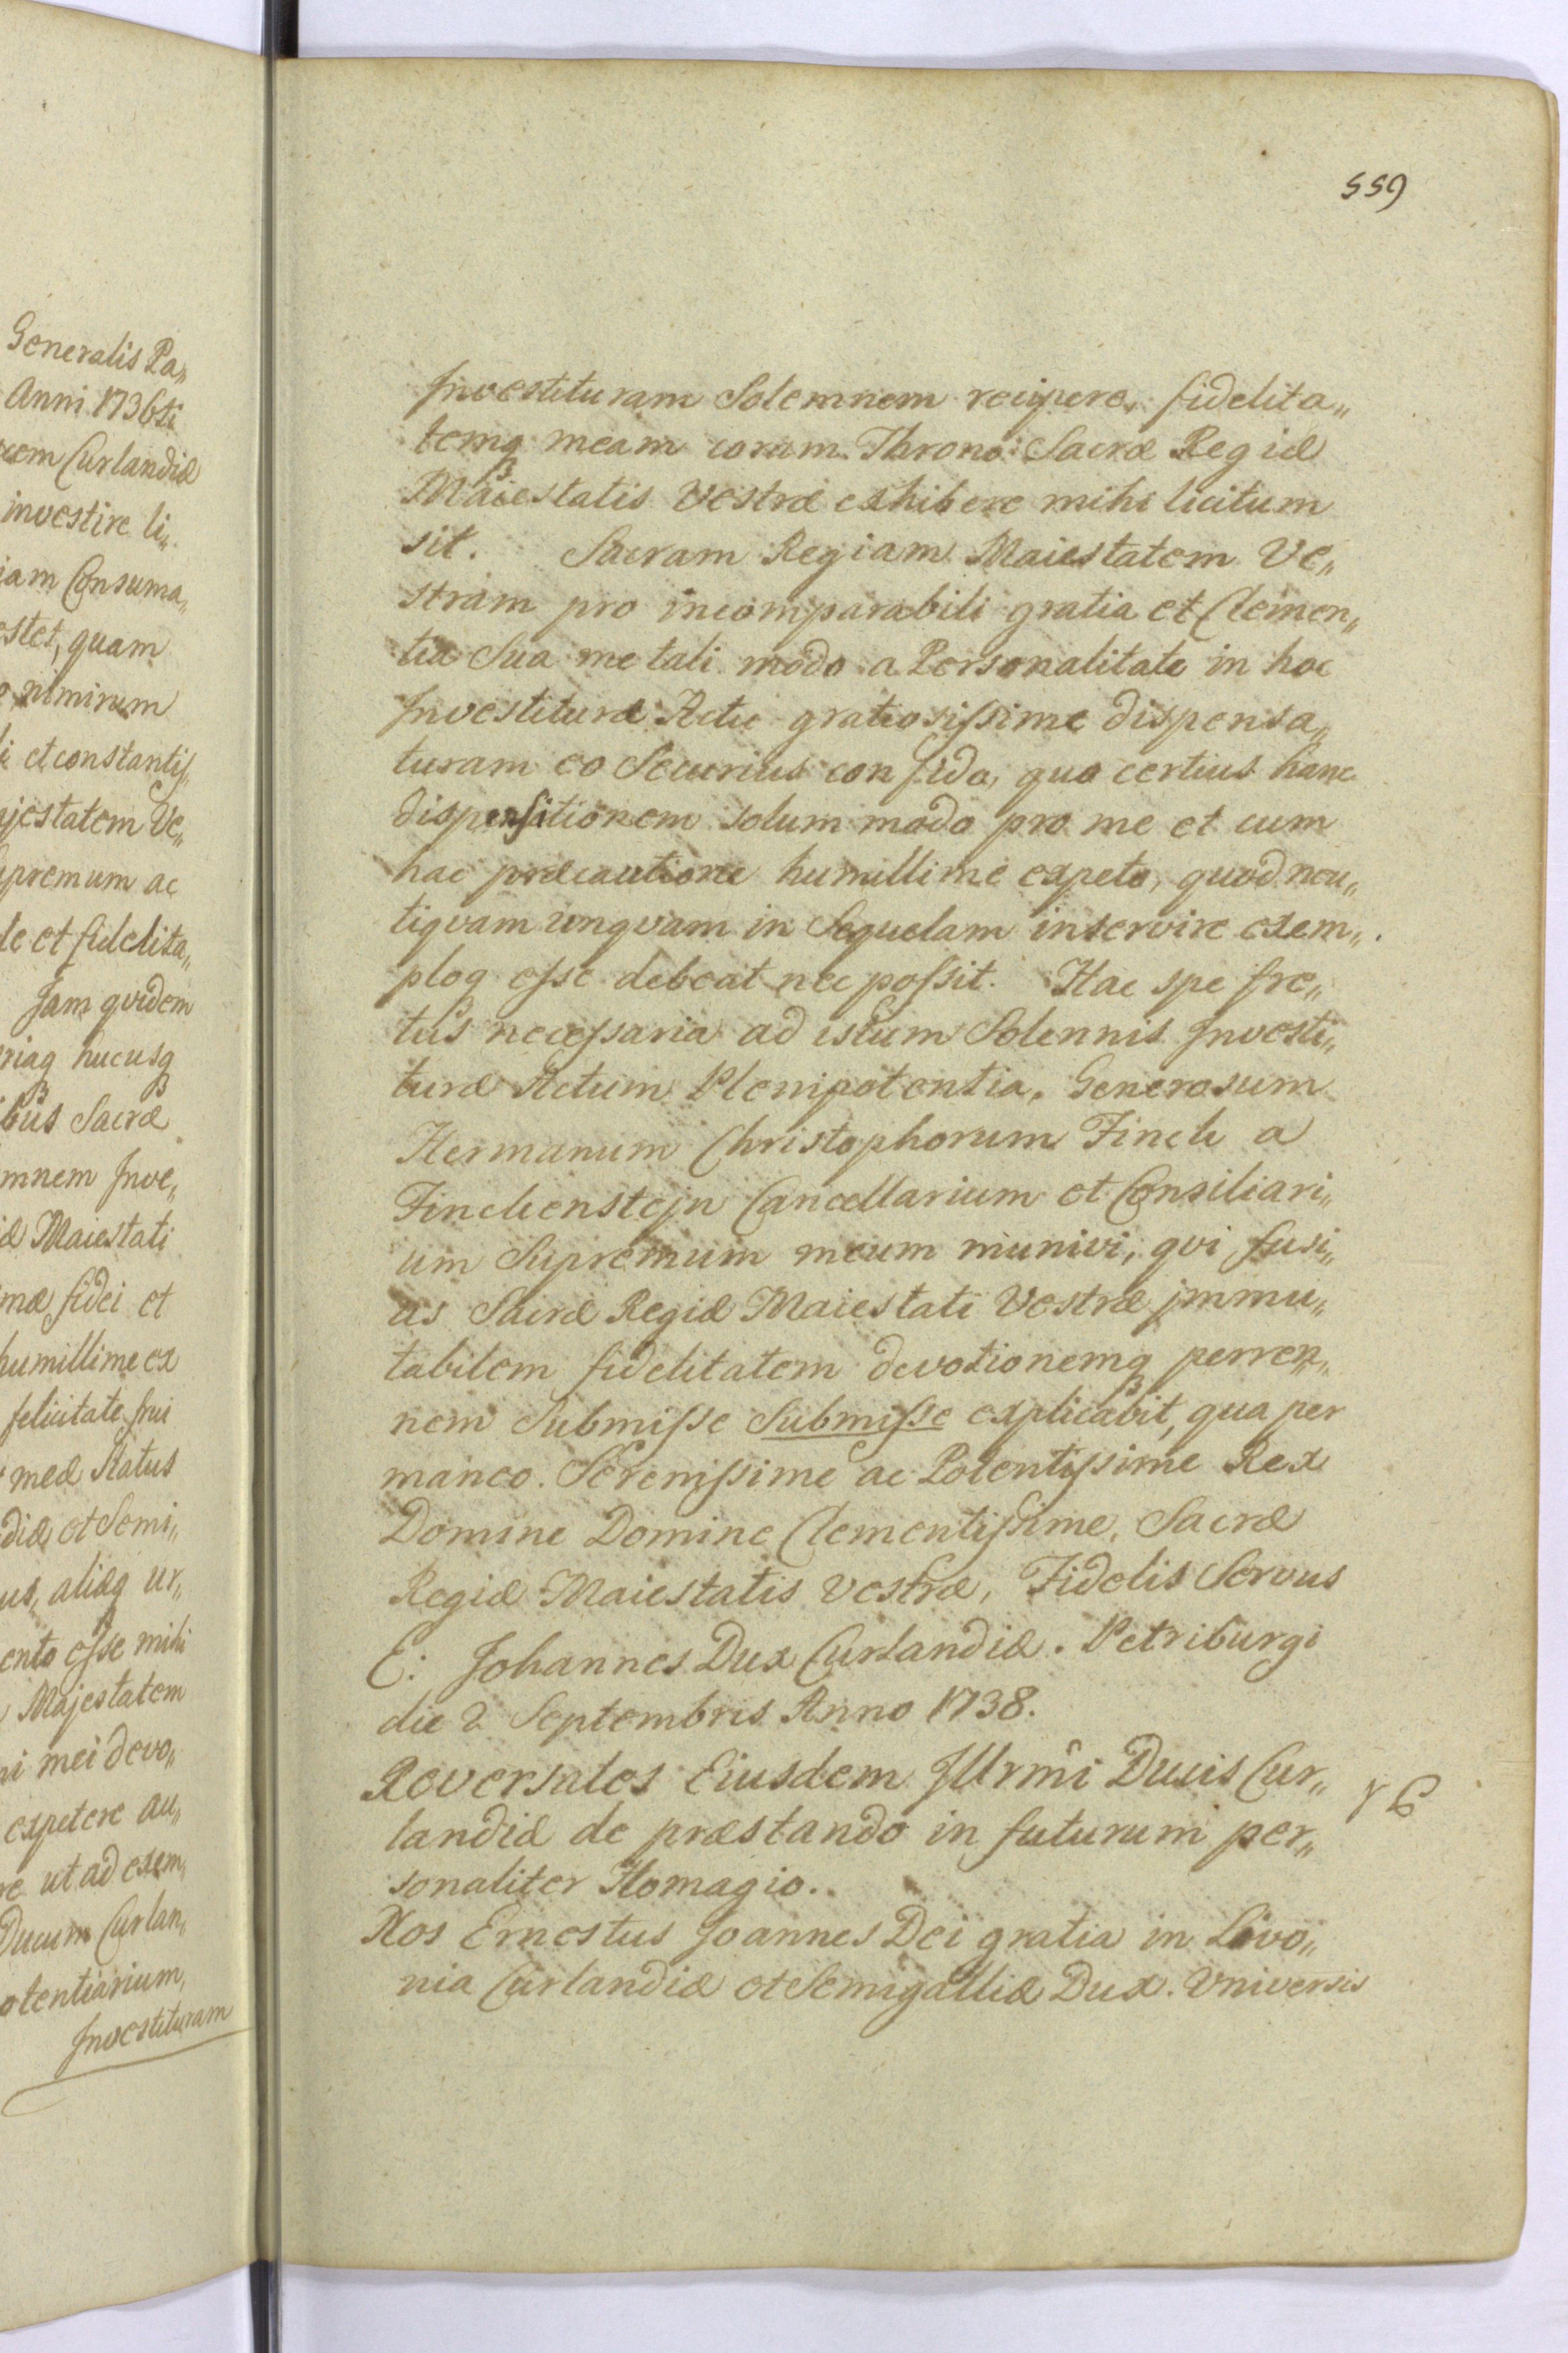 Generalis Pa„
Anni 1736ti
Curlandiæ
investire li„
iam Consuma„
quam
nimirum
et constantiſ„
Ve„
ac
et fidelita„
Jam qvidem
hucusq
Sacræ
Inve„
Maiestati
fidei et
humillime ex
felicitate frui
meæ Status
et Semi„
aliæq ur„
esse mihi
Majestatem
mei devo„
expetere au„
ut ad exem„
Ducum Curlan„
Investituram
559
Investituram Solemnem recipere, fidelita„
temq meam coram Throno Sacræ Regiæ
Maiestatis Vestræ exhibere mihi licitum
sit. Sacram Regiam Maiestatem Ve„
stram pro incomparabili gratia et Clemen„
tia Sua me tali modo a Personalitate in hoc
Investituræ Actu gratiosiſsime dispensa„
turam eo Securius confido, quo certius hanc
dispensationem solum modo pro me et cum
hac præcautione humillime expeto, quod neu„
tiqvam unqvam in Sequelam inservire exem„
ploq eſse debeat nec poſsit. Hac spe fre„
tus neceſsaria ad istum Solennis Investi„
turæ Actum Plenipotentia, Generosum
Hermanum Christophorum Finck a
Finckenstejn Cancellarium et Consiliari„
um Supremum meum munivi, qvi fusi„
us Sacræ Regiæ Maiestati Vestræ jmmu„
tabilem fidelitatem devotionemq peren„
nem Submiſse Submiſse explicabit, qua per
maneo. Sereniſsime ac Potentiſsime Rex
Domine Domine Clementiſsime, Sacræ
Regiæ Maiestatis Vestræ, Fidelis Servus
E: Johannes Dux Curlandiæ. Petriburgi
die 2 Septembris Anno 1738.
Reversales Eiusdem Illrmi Ducis Cur„
landiæ de præstando in futurum per„
sonaliter Homagio.
Nos Ernestus Joannes Dei gratia in Livo„
nia Curlandiæ et Semigalliæ Dux. Vniversis